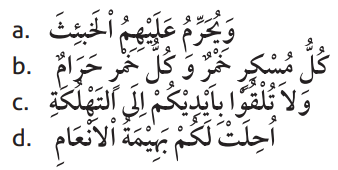 a. وَيُحَرِّمُ عَلَيْهِمُ الْخَبٰئِثَ
b. كُلُّ مُسْكِرٍ خَمْرٌ وَ كُلُّ خَمْرٍ حَرَامٌ
c. وَلَا تُلْقُوْا بِاَيْدِيْكُمْ اِلَى التَّهْلُكَةِ
d. اُحِلَتْ لَكُمْ بَهِيْمَةُ الْاَنْعَامِ